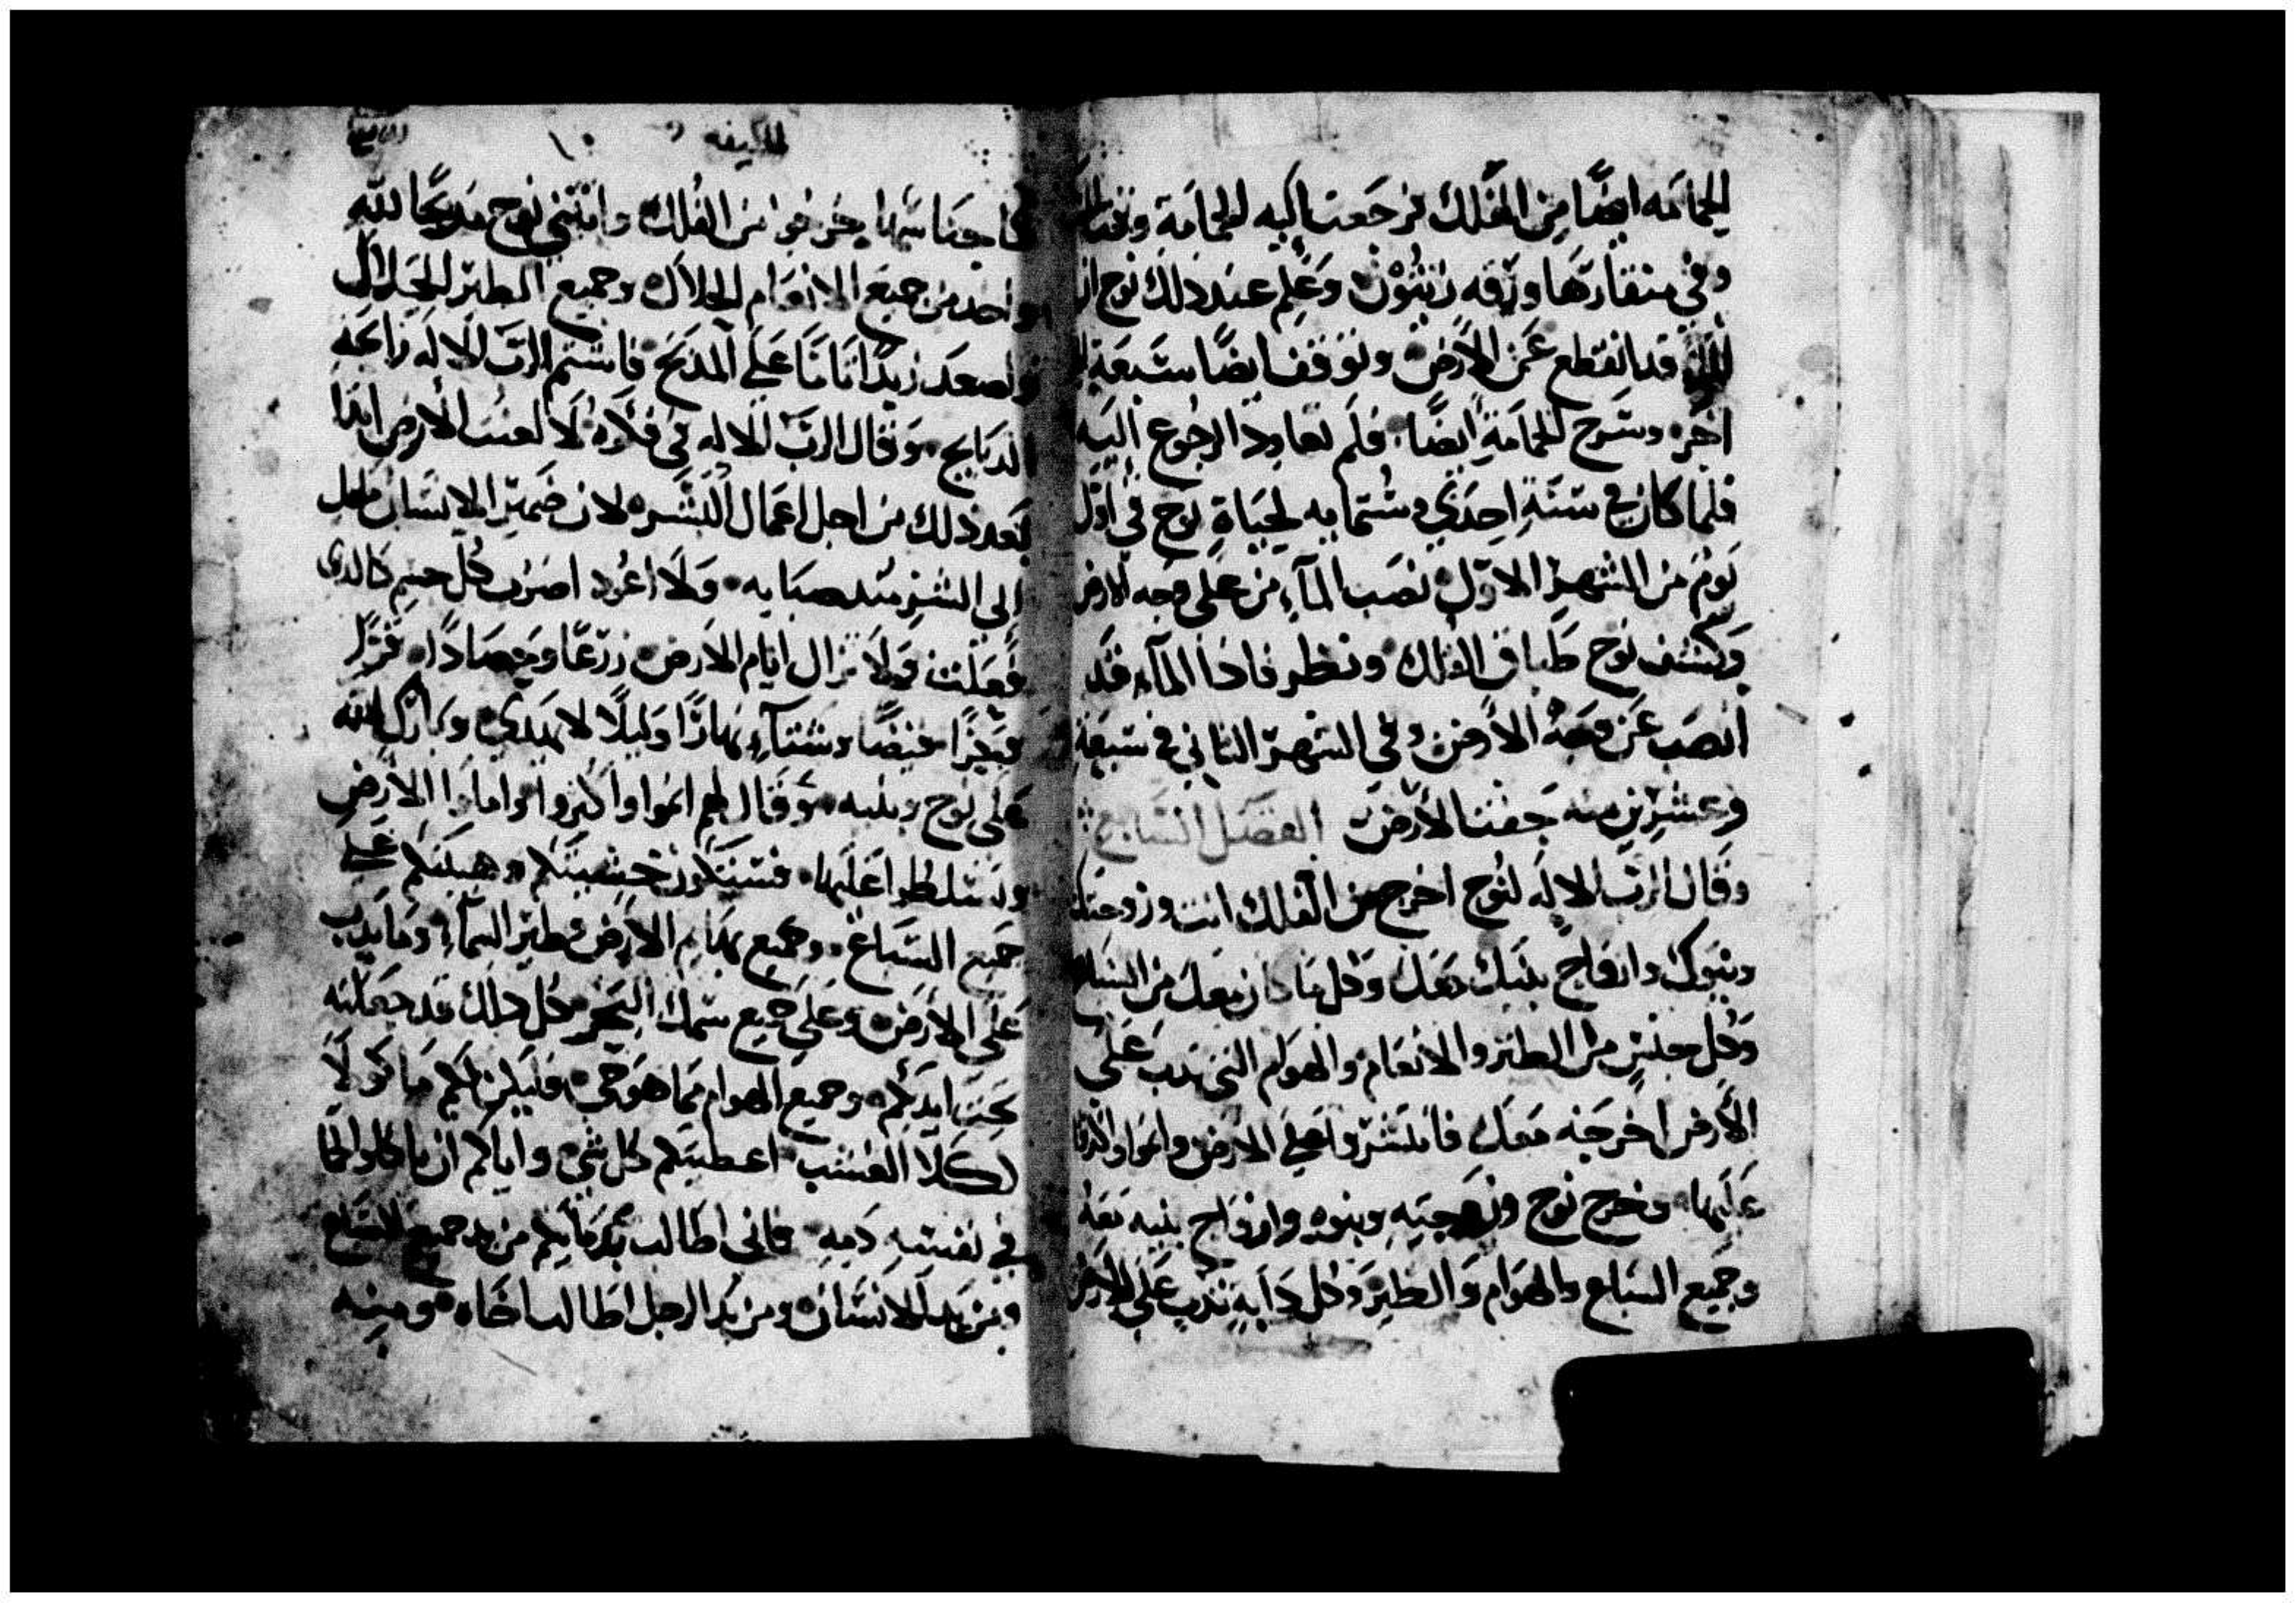 الحمامه ايضًا من الفلك فرجعت اليه الحمامة وقت
وفي منقارها ورقه زيتون وعلم عند ذلك نوح ان
الماء قد انقطع عن الارض وتوقف ايضًا سبعة
اخر وسرح الحمامة ايضًا فلم تعاود الرجوع اليه
فلما كان في سنة احدى وستمايه لحياة نوح في اول
يوم من الشهر الاول نضب المآء من على وجه الارض
وكشف نوح طباق الفلك ونظر فاذا المآء قد
انضب عن وجه الارض وفي الشهر الثاني في سبعة
وعشرين منه جفت الارض الفصل السابع
وقال الرب الاله لنوح اخرج من الفلك انت وزوجتك
وبنوك وازواج بنيك معك وكل ما كان معك من السباع
وكل جنس من الطير والانعام والهوام التي تدب على
الارض اخرجه معك فانتشروا على الارض وانموا واكثروا
عليها وخرج نوح وزوجته وبنوه وازواج بنيه معه
وجميع السباع والهوام والطير وكل دآبة تدب على الارض
الخليقه
كاجناسها خرجوا من الفلك وابتنى نوح مذبحًا لله
واخذ من جميع الانعام الحلال وجميع الطير الحلال
واصعد قربانا على المذبح فاشتم الرب الاله رايحة
الذبايح وقال الرب الاله في فكره لا العن الارض ابدا
بعد ذلك من اجل اعمال البشر لان ضمير الانسان مايل
الى الشر منذ صبايه ولا اعود اضرب كل جسم كالدى
فعلت ولا تزال ايام الارض زرعًا وحصادًا قرًا
وحرًا قيضًا وشتآء نهارًا وليلًا لا يهدي وبارك الله
على نوح وبنيه وقال لهم انموا واكثروا واملوا الارض
وتسلطوا عليها فستكون خشيتكم وهيبتكم على
جميع السباع وجميع بهايم الارض وطير السمآء وما يدب
على الارض وعلى جميع سمك البحر كل ذلك قد جعلته
تحت ايديكم وجميع الهوام مما هو حي فليكن لكم ماكولًا
كلا العشب اعطيتكم كل شى واياكم ان تاكلوا لحمًا
في نفسه دمه فانى اطالب بدمايكم من يد جميع السباع
ومن يد الانسان ومن يد الرجل اطالب اخاه ومنه